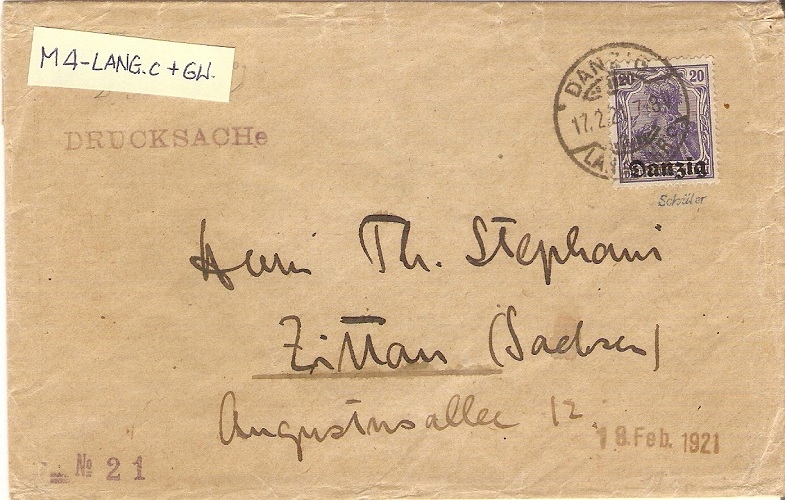 M4-LANG.C + GW.
DRUCKSACHe
DANZIG
17.2.21 7-8
20 20
Danzig
Schüler
Herrn Th. Stephani
Zittau (Sachsen)
Augustusallee 12.
18. Feb. 1921
№ 21